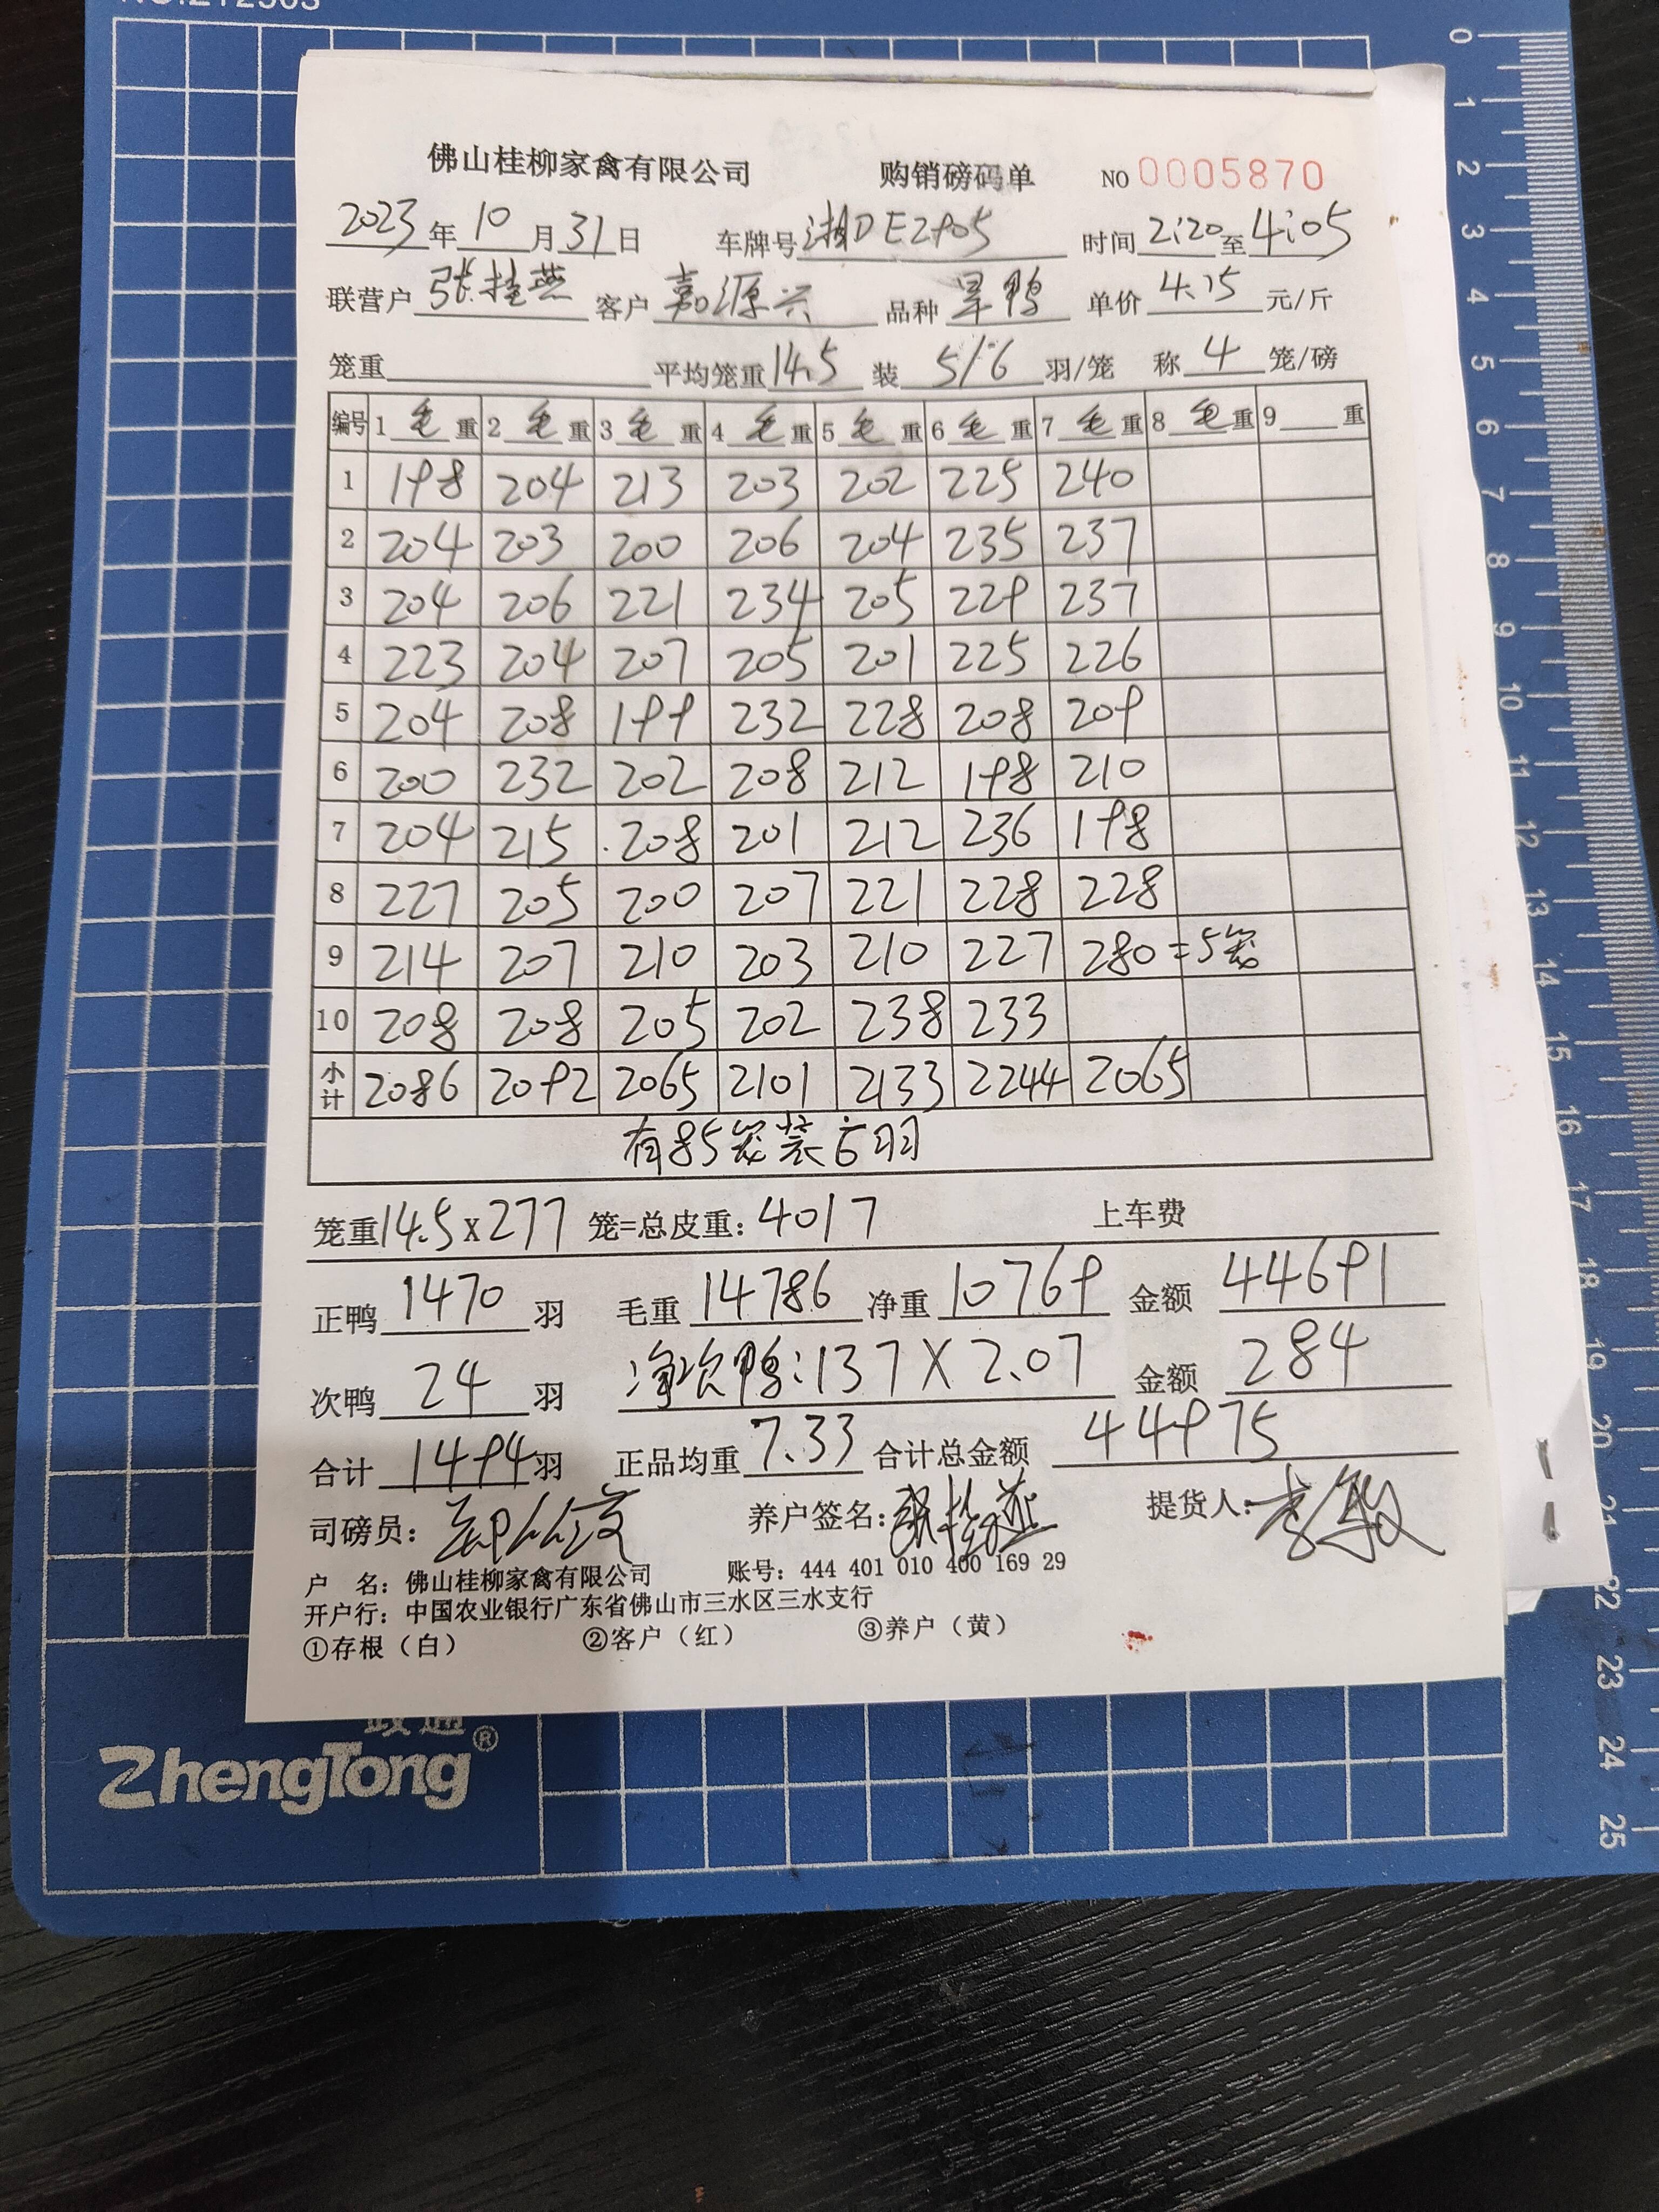 佛山桂柳家禽有限公司 购销磅码单 NO 0005870
2023年10月31日 车牌号湘DE2905 时间2:20至4:05
联营户张桂燕 客户嘉源兴 品种旱鸭 单价4.15元/斤
笼重 平均笼重14.5 装5/6羽/笼 称4笼/磅
编号 1毛重 2毛重 3毛重 4毛重 5毛重 6毛重 7毛重 8毛重 9重
1 198 204 213 203 202 225 240
2 204 203 200 206 204 235 237
3 204 206 221 234 205 229 237
4 223 204 207 205 201 225 226
5 204 208 199 232 228 208 209
6 200 232 202 208 212 198 210
7 204 215 208 201 212 236 198
8 227 205 200 207 221 228 228
9 214 207 210 203 210 227 280=5笼
10 208 208 205 202 238 233
小计 2086 2092 2065 2101 2133 2244 2065
有85笼装6羽
笼重14.5x277笼=总皮重:4017 上车费
正鸭1470羽 毛重14786 净重10769 金额44691
次鸭24羽 净次鸭:137X2.07 金额284
合计1494羽 正品均重7.33 合计总金额44975
司磅员: 养户签名:张桂燕 提货人:
户 名:佛山桂柳家禽有限公司 账号:444 401 010 400 169 29
开户行:中国农业银行广东省佛山市三水区三水支行
①存根(白) ②客户(红) ③养户(黄)
ZhengTong®
0
1
2
3
4
5
6
7
8
9
10
11
12
13
14
15
16
17
18
19
20
21
22
23
24
25